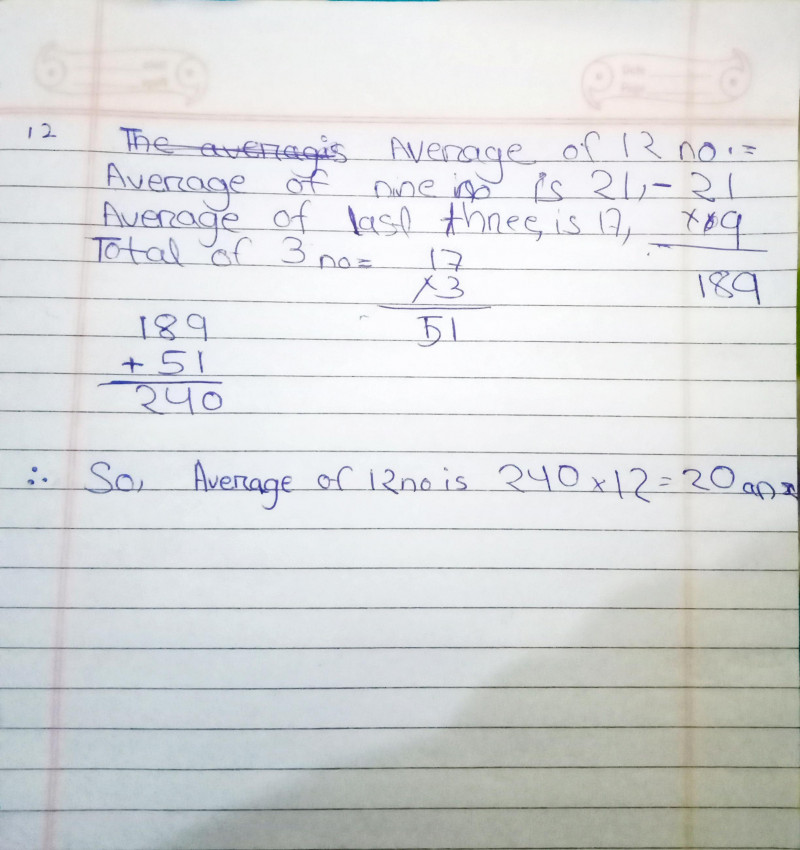 12 The averagis Average of 12 no.=
Average of nine no is 21,- 21
Average of last three, is 17, x 9
Total of 3 no= 17
x3 189
51
189
+ 51
240
∴ So, Average of 12 no is 240 x 12 = 20 ans